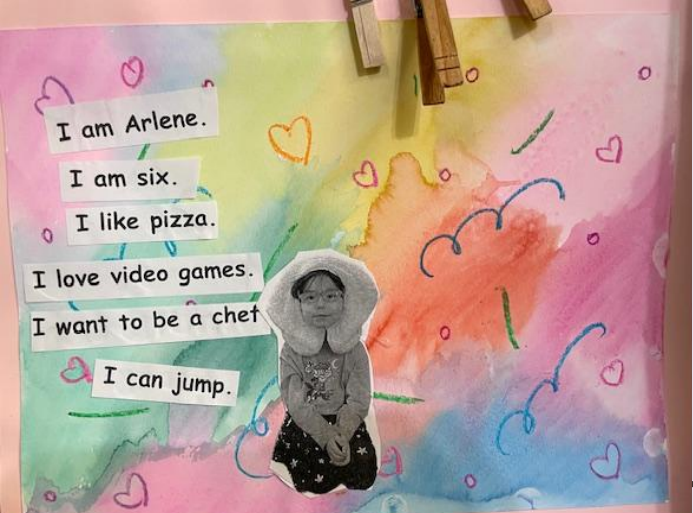 I am Arlene.
I am six.
I like pizza.
I love video games.
I want to be a chef
I can jump.